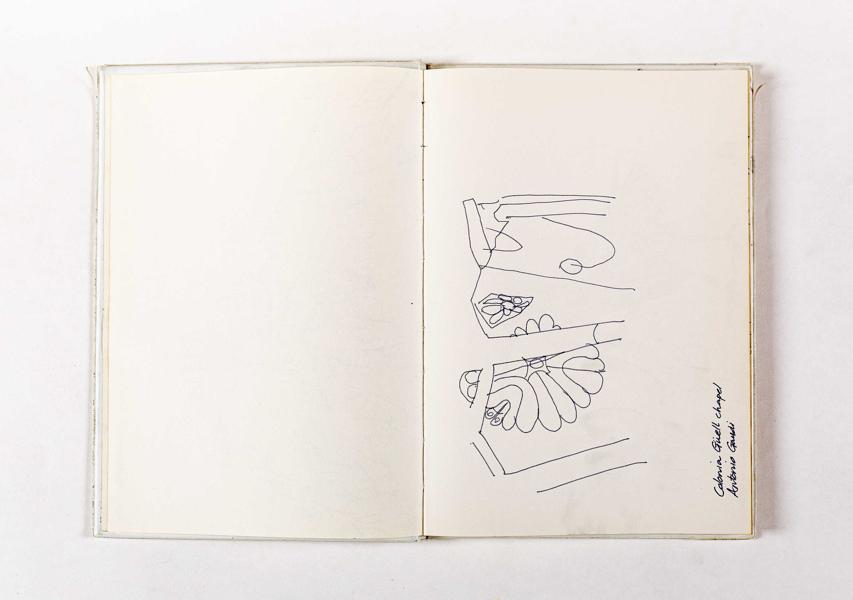 Colonia Güell chapel
Antonio Gaudi